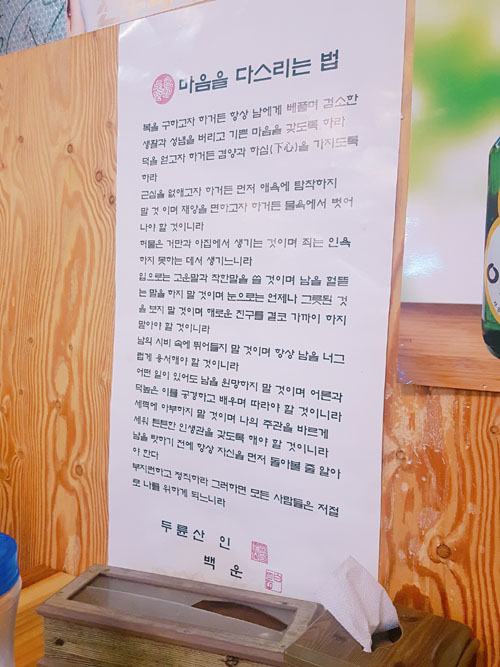 마음을 다스리는 법
복을 구하고자 하거든 항상 남에게 베풀며 검소한
생활과 성냄을 버리고 기쁜 마음을 갖도록 하라
덕을 얻고자 하거든 겸양과 하심(下心)을 가지도록
하라
근심을 없애고자 하거든 먼저 애욕에 탐착하지
말 것 이며 재앙을 면하고자 하거든 물욕에서 벗어
나야 할 것이니라
허물은 거만과 아집에서 생기는 것이며 죄는 인욕
하지 못하는 데서 생기느니라
입으로는 고운말과 착한말을 쓸 것이며 남을 헐뜯
는 말을 하지 말 것이며 눈으로는 언제나 그릇된 것
을 보지 말 것이며 해로운 친구를 결코 가까이 하지
말아야 할 것이니라
남의 시비 속에 뛰어들지 말 것이며 항상 남을 너그
럽게 용서해야 할 것이니라
어떤 일이 있어도 남을 원망하지 말 것이며 어른과
덕높은 이를 공경하고 배우며 따라야 할 것이니라
세력에 아부하지 말 것이며 나의 주관을 바르게
세워 튼튼한 인생관을 갖도록 해야 할 것이니라
남을 탓하기 전에 항상 자신을 먼저 돌아볼 줄 알아
야 한다
부지런하고 정직하라 그러하면 모든 사람들은 저절
로 나를 위하게 되느니라
두륜산 인
백 운